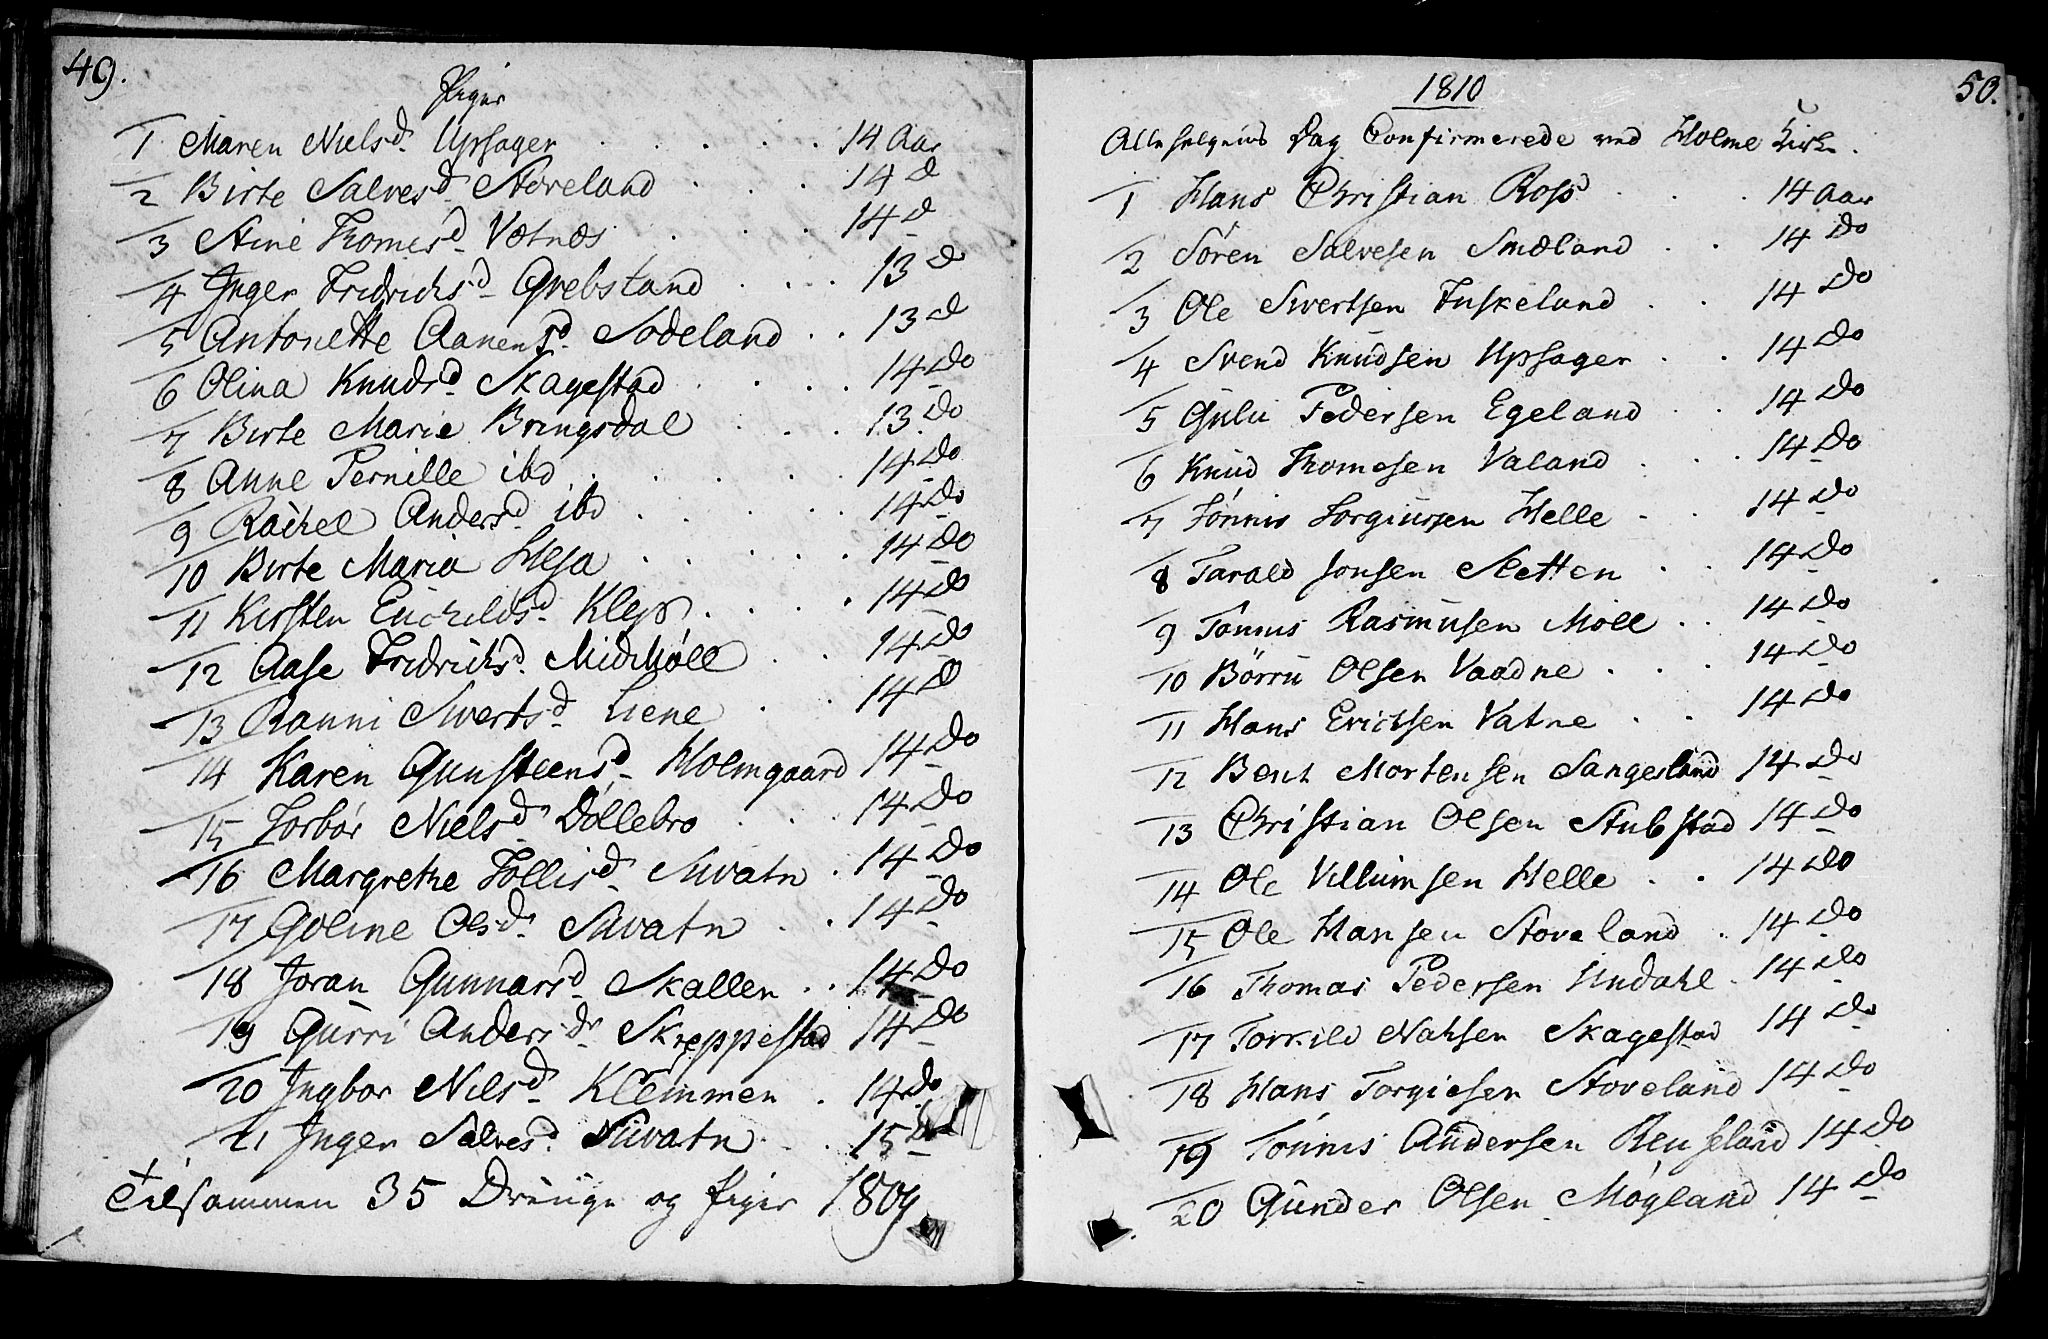 49.
Piger
1 Maren Nielsd. Upsager 14 Aar
2 Birte Salvesd. Stoveland 14 d
3 Stine Thomesd. Vatnes 14 d
4 Inger Fridrichsd. Qvebsland 13 do
5 Antonette Aanensd. Sodeland 13 d
6 Olina Knudsd. Skagestad 14 Do
7 Birte Marie Bringsdal 13 Do
8 Anne Pernille ibd 14 Do
9 Rachel Andersd. ibd 14 Do
10 Birte Maria 14 Do
11 Kirsten Klep 14 Do
12 Aase Fridrichsd. Midmöll 14 Do
13 Ranni Sivertsd. Liene 14 D
14 Karen Gunsteensd. Holmgaard 14 Do
15 Torbor Nielsd. Döllebro 14 Do
16 Margrethe Tollisd. 14 Do
17 Goline Olsd. 14 Do
18 Joran Gunnarsd. Skallen 14 Do
19 Gurri Andersd. Skreppestad 14 Do
20 Ingbor Nilsd. Klemmen 14 Do
21 Inger Salvesd. 15 Do
Tilsammen 35 Drenge og Piger 1809
50.
1810
Allehelgens Dag Confirmerede ved Holme Kirke.
1 Hans Christian Ross 14 Aar
2 Sören Salvesen Smæland 14 Do
3 Ole Sivertsen Fuskeland 14 Do
4 Svend Knudsen Upsager 14 Do
5 Guliv Pedersen Egeland 14 Do
6 Knud Thomesen Valand 14 Do
7 Tönnis Torgiussen Helle 14 Do
8 Tarald Jonsen Sletten 14 Do
9 Tönnis Rasmusen Möll 14 Do
10 Börru Olsen Vaadne 14 Do
11 Hans Erichsen Vatne 14 Do
12 Bent Mortensen Sangesland 14 Do
13 Christian Olsen Stubstad 14 Do
14 Ole Villumsen Helle 14 Do
15 Ole Hansen Stoveland 14 Do
16 Thomas Pedersen Undahl 14 Do
17 Torkild Skagestad 14 Do
18 Hans Torgiesen Stoveland 14 Do
19 Tönnis Andersen 14 Do
20 Gunder Olsen Mögland 14 Do